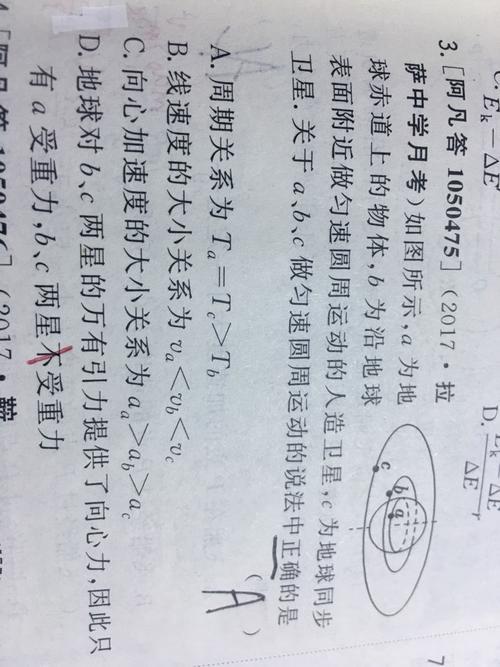 C. E_k − ΔE
3. [阿凡答 1050475] (2017 · 拉
萨中学月考)如图所示,a 为地
球赤道上的物体,b 为沿地球
表面附近做匀速圆周运动的人造卫星,c 为地球同步
卫星.关于 a、b、c 做匀速圆周运动的说法中正确的是
( A )
c
b
a
A. 周期关系为 T_a = T_c > T_b
B. 线速度的大小关系为 v_a < v_b < v_c
C. 向心加速度的大小关系为 a_a > a_b > a_c
D. 地球对 b、c 两星的万有引力提供了向心力,因此只
有 a 受重力,b、c 两星不受重力
4. [阿凡答 1050476] (2017 ·